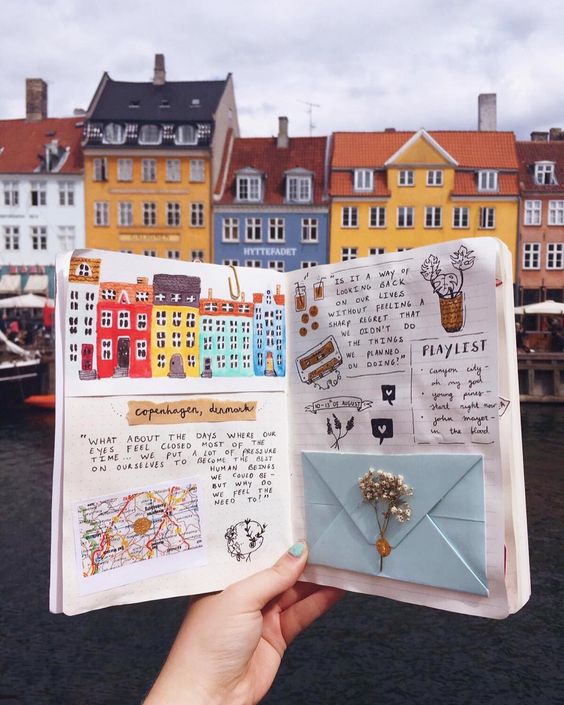 HYTTEFADET
copenhagen, denmark
"WHAT ABOUT THE DAYS WHERE OUR
EYES FEEL CLOSED MOST OF THE
TIME... WE PUT A LOT OF PRESSURE
ON OURSELVES TO BECOME THE BEST
HUMAN BEINGS
WE COULD BE -
BUT WHY DO
WE FEEL THE
NEED TO?"
"IS IT A WAY OF
LOOKING BACK
ON OUR LIVES
WITHOUT FEELING A
SHARP REGRET THAT
WE DIDN'T DO
THE THINGS
WE PLANNED
ON DOING?"
10-13TH OF AUGUST
PLAYLIST
- canyon city -
oh my god
- young pines -
start right now
- john mayer -
in the blood